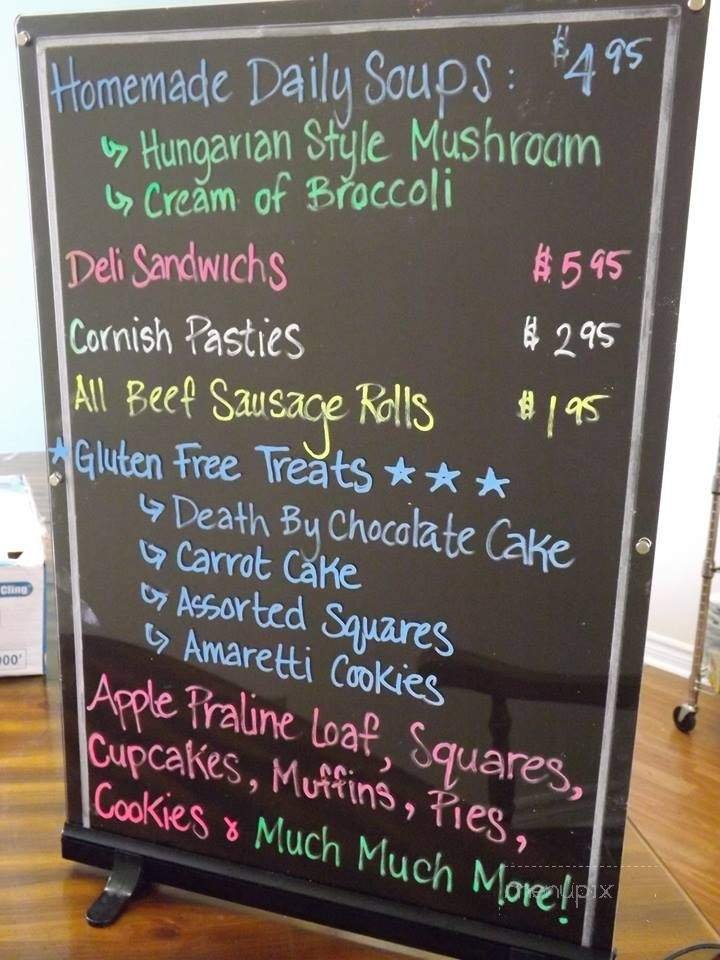 Homemade Daily Soups: $4.95
↳ Hungarian Style Mushroom
↳ Cream of Broccoli
Deli Sandwichs $5.95
Cornish Pasties $2.95
All Beef Sausage Rolls $1.95
★Gluten Free Treats ★★★
↳ Death By Chocolate Cake
↳ Carrot Cake
↳ Assorted Squares
↳ Amaretti Cookies
Apple Praline Loaf, Squares,
Cupcakes, Muffins, Pies,
Cookies & Much Much More!
Cling
000'
menupix